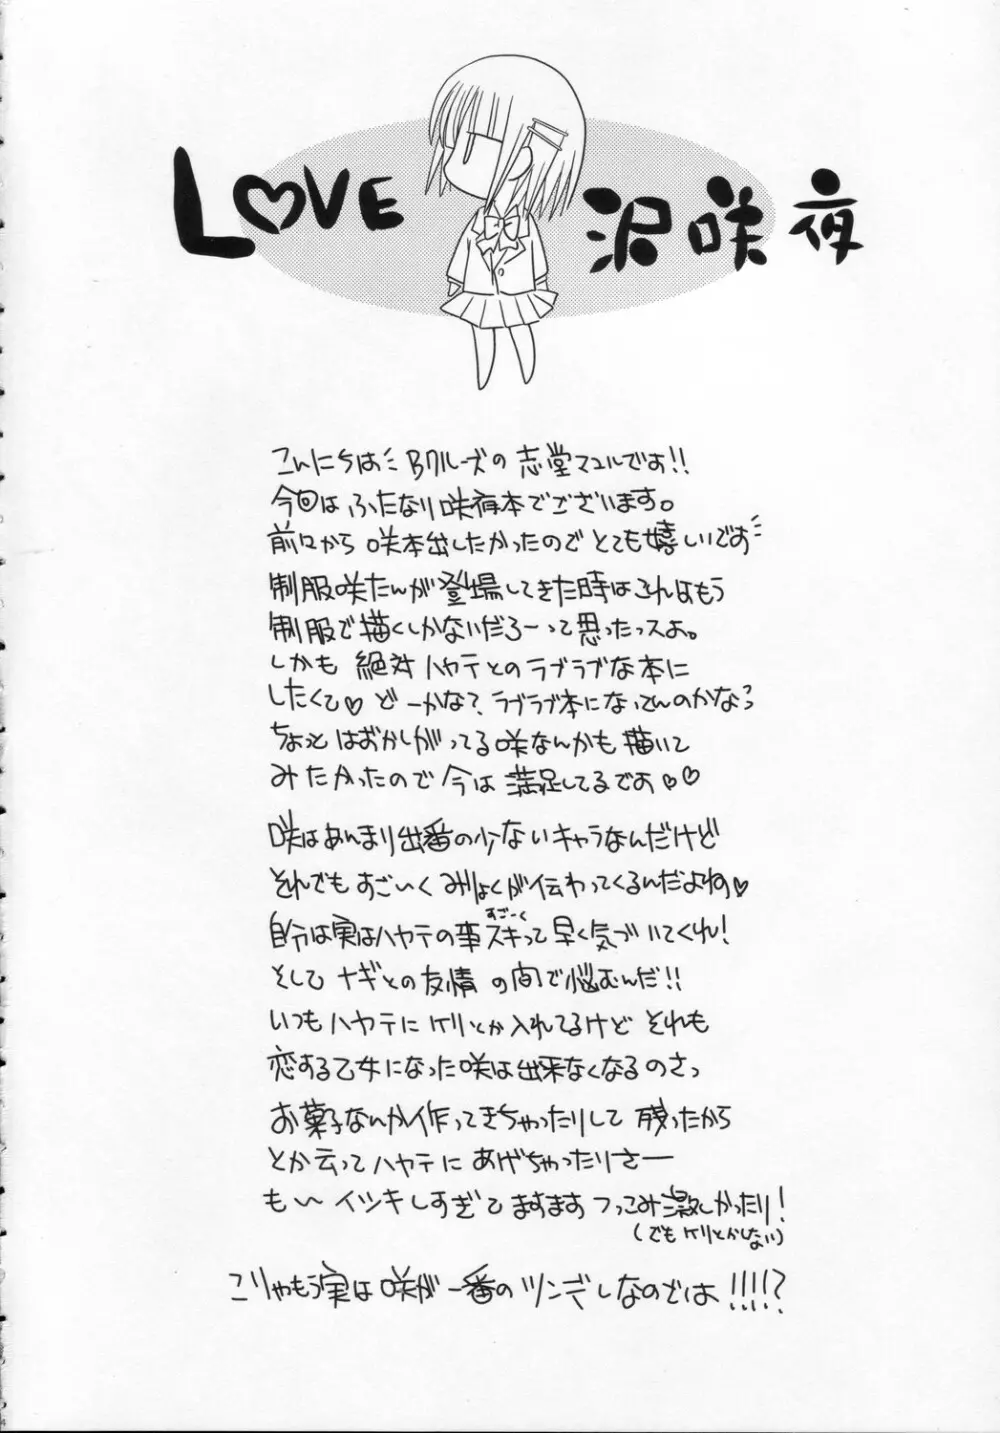 LOVE 沢咲夜
こんにちは Bクルーズの 志堂マユルです!!
今回は ふたなり 咲夜本でございます。
前々から 咲本出したかったので とても嬉しいです
制服咲たんが 登場してきた時は これはもう
制服で描くしかないだろーって思ったっスよ。
しかも 絶対 ハヤテとの ラブラブな本に
したくて♡ どーかな?ラブラブ本になってんのかなっ
ちょっと はおかしがってる 咲なんかも 描いて
みたかったので 今は 満足してるです♡♡
咲はあんまり出番の少ないキャラなんだけど
それでも すごいく みりょくが伝わってくるんだよね♡
自分は実はハヤテの事スキって 早く気づいてくれ!
すごーく
そして ナギとの友情 の間で悩むんだ!!
いつもハヤテに ケリとか入れてるけど それも
恋する乙女になった咲は出来なくなるのさっ
お菓子なんか作ってきちゃったりして 残ったから
とか云ってハヤテに あげちゃったりさー
も〜 イツキしすぎて ますます つっこみ激しかったり!
(でも ケリとかしない)
こりゃもう実は 咲が 一番の ツンデレなのでは!!!!?